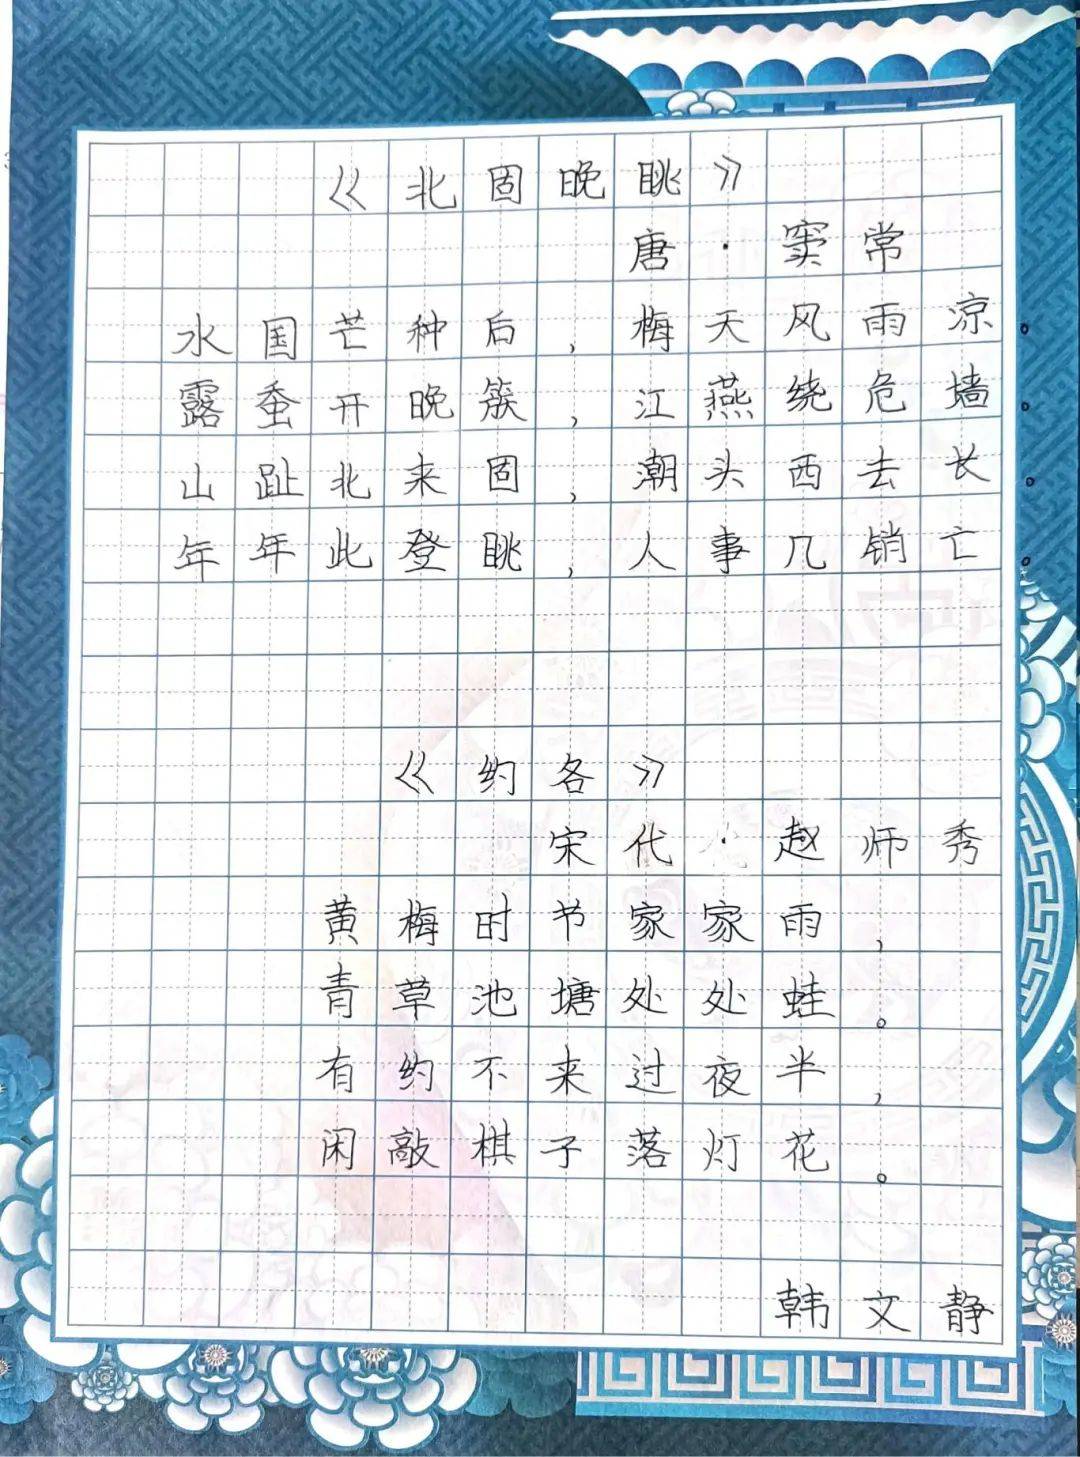 《北固晚眺》
唐·窦常
水国芒种后，梅天风雨凉。
露蚕开晚簇，江燕绕危墙。
山趾北来固，潮头西去长。
年年此登眺，人事几销亡。
《约各》
宋代·赵师秀
黄梅时节家家雨，
青草池塘处处蛙。
有约不来过夜半，
闲敲棋子落灯花。
韩文静